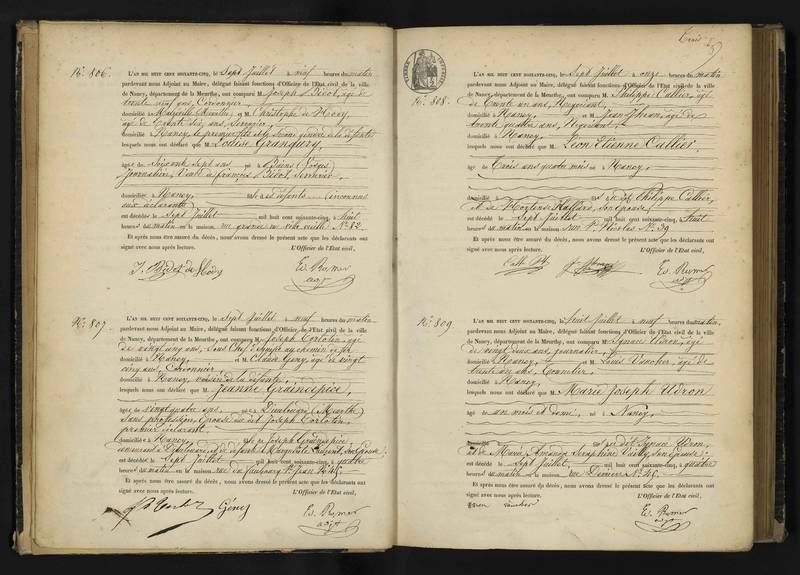 N° 806.
L'AN MIL HUIT CENT SOIXANTE-CINQ, le Sept Juillet à neuf heures du matin
pardevant nous Adjoint au Maire, délégué faisant fonctions d'Officier de l'Etat civil de la ville
de Nancy, département de la Meurthe, ont comparu M. Joseph Bidot, âgé de
trente neuf ans, Cordonnier,
domicilié à et M. Christophe de
âgé de trente six ans, Serrurier,
domicilié à Nancy, le premier fils et le second gendre de la défunte
lesquels nous ont déclaré que M. Louise Grangury,
âgée de Soixante Sept ans née à (Vosges)
journalière, Veuve de François Bidot, Serrurier,
domiciliée à Nancy,
ont décédée le Sept Juillet mil huit cent soixante-cinq, à huit
heures du matin en la maison N° 82.
Et après nous être assuré du décès, nous avons dressé le présent acte que les déclarants ont
signé avec nous après lecture. L'Officier de l'Etat civil,
N° 807.
L'AN MIL HUIT CENT SOIXANTE-CINQ, le Sept Juillet à neuf heures du matin
pardevant nous Adjoint au Maire, délégué faisant fonctions d'Officier de l'Etat civil de la ville
de Nancy, département de la Meurthe, ont comparu M. Joseph Corloton, âgé
de vingt cinq ans, Sous Chef d'équipe au chemin de fer
domicilié à Nancy, et M. Gény, âgé de vingt
cinq ans,
domicilié à Nancy, voisin de la défunte,
lesquels nous ont déclaré que M. Jeanne Grainespice,
âgée de vingt quatre ans née à Dieulouard (Meurthe)
Sans profession, épouse du dit Joseph Corloton,
premier déclarant
domiciliée à Nancy, fille de Joseph Grainespice
demeurant à Dieulouard, et de défunte Marguerite Laurent, son Epouse,
ont décédée le Sept Juillet mil huit cent soixante-cinq, à quatre
heures du matin en la maison rue du faubourg St Jean N°
Et après nous être assuré du décès, nous avons dressé le présent acte que les déclarants ont
signé avec nous après lecture. L'Officier de l'Etat civil,
Gény
N° 808.
L'AN MIL HUIT CENT SOIXANTE-CINQ, le Sept Juillet à onze heures du matin
pardevant nous Adjoint au Maire, délégué faisant fonctions d'Officier de l'Etat civil de la ville
de Nancy, département de la Meurthe, ont comparu M. Philippe Callier, âgé
de Trente un ans, Négociant,
domicilié à Nancy, et M. Jean âgé de
trente quatre ans, Négociant,
domicilié à Nancy,
lesquels nous ont déclaré que M. Léon Etienne Callier,
âgé de Trois ans quatre mois né à Nancy,
domicilié à fils du dit Philippe Callier,
et de Hortense son Epouse,
ont décédé le Sept Juillet mil huit cent soixante-cinq, à huit
heures du matin en la maison rue St Nicolas N° 39
Et après nous être assuré du décès, nous avons dressé le présent acte que les déclarants ont
signé avec nous après lecture. L'Officier de l'Etat civil,
N° 809.
L'AN MIL HUIT CENT SOIXANTE-CINQ, le huit Juillet à neuf heures du matin,
pardevant nous Adjoint au Maire, délégué faisant fonctions d'Officier de l'Etat civil de la ville
de Nancy, département de la Meurthe, ont comparu M. Ignace Udron, âgé
de vingt deux ans, journalier,
domicilié à Nancy, et M. Louis âgé de
trente six ans, Tonnelier,
domicilié à Nancy,
lesquels nous ont déclaré que M. Marie Joseph Udron
âgé de un mois et demi, né à Nancy,
domicilié à du dit Ignace Udron,
et de Marie Amanda Séraphine son Epouse,
ont décédé le Sept Juillet mil huit cent soixante-cinq, à quatre
heures du matin en la maison N° 46.
Et après nous être assuré du décès, nous avons dressé le présent acte que les déclarants ont
signé avec nous après lecture. L'Officier de l'Etat civil,